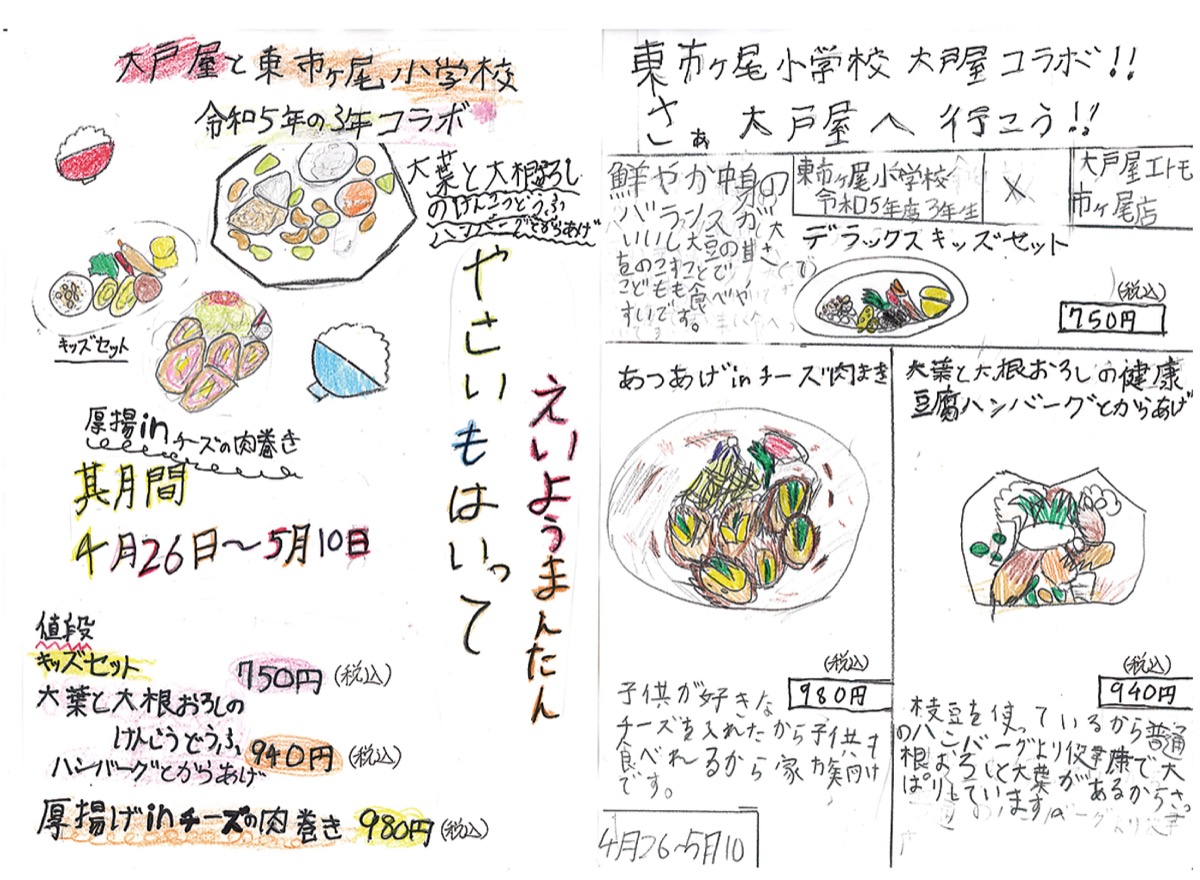 大戸屋と東市ヶ尾小学校
令和5年の3年コラボ
大葉と大根おろし
のけんこうどうふ
ハンバーグとからあげ
やさいもはいって
えいようまんたん
キッズセット
厚揚inチーズの肉巻き
其月間
4月26日〜5月10日
値段
キッズセット 750円(税込)
大葉と大根おろしの
けんこうどうふ 940円(税込)
ハンバーグとからあげ
厚揚げinチーズの肉巻き 980円(税込)
東市ヶ尾小学校 大戸屋コラボ!!
さぁ 大戸屋へ 行こう!!
東市ヶ尾小学校
令和5年度3年生
×
大戸屋エトモ
市ヶ尾店
鮮やか中身の
バランスが
いいし大豆の甘さ
こどもも食べや
すいです。
デラックスキッズセット
(税込)
750円
あつあげinチーズ肉まき
(税込)
980円
子供が好きな
チーズを入れたから子供も
食べれるから家族向け
です。
大葉と大根おろしの健康
豆腐ハンバーグとからあげ
(税込)
940円
枝豆を使っているから普通
のハンバーグより健康で大
根おろしと大葉があるからさっ
ぱりしています。
4月26〜5月10